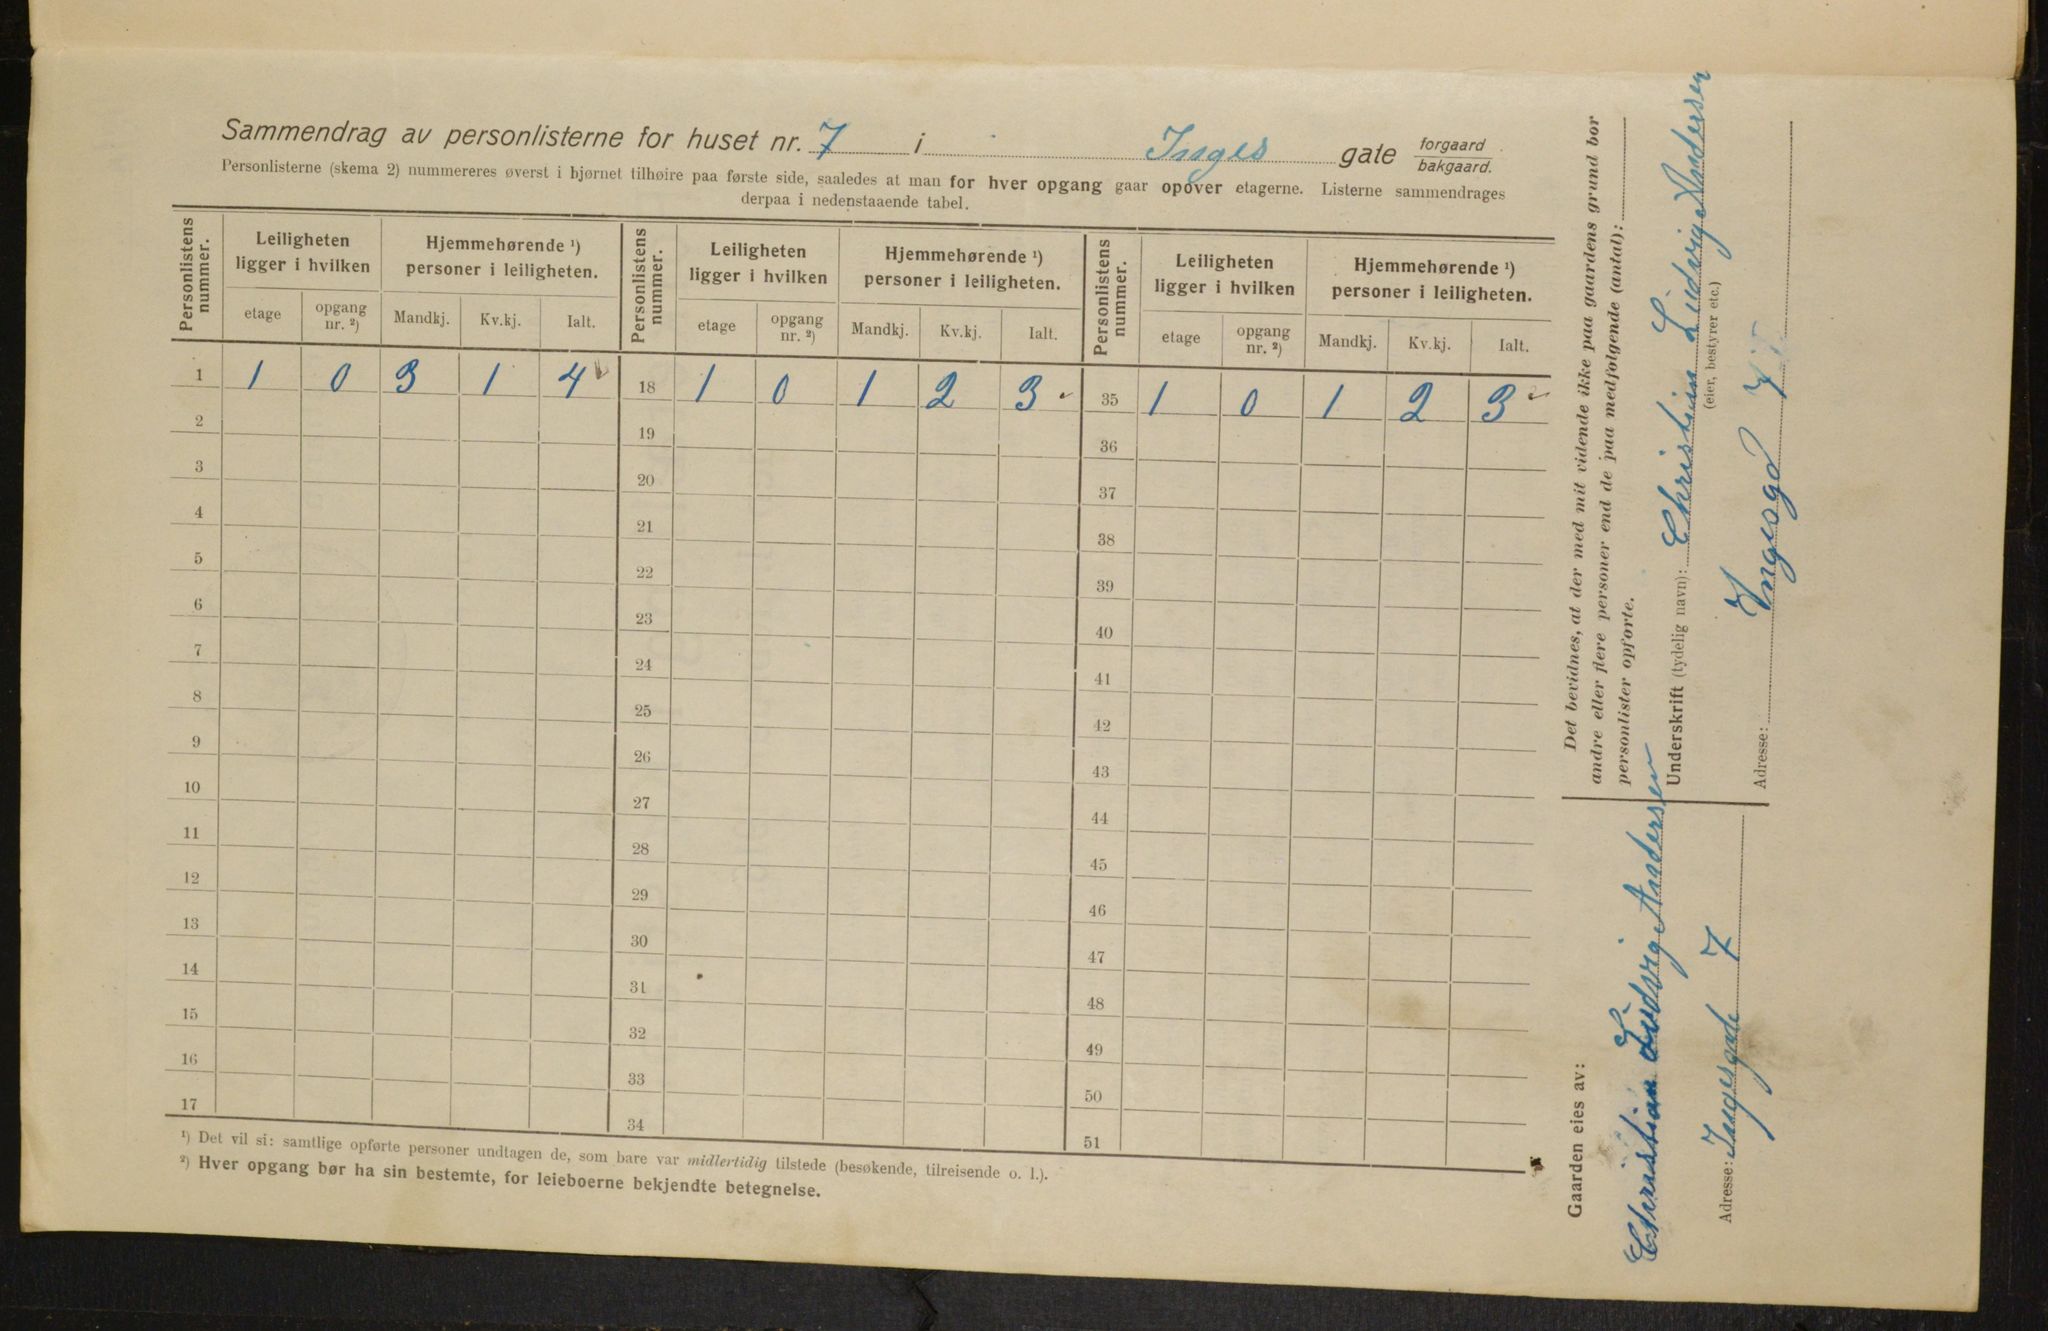 Sammendrag av personlisterne for huset nr. 7 i Inges gate forgaard
bakgaard.
Personlisterne (skema 2) nummereres øverst i hjørnet tilhøire paa første side, saaledes at man for hver opgang gaar opover etagerne. Listerne sammendrages
derpaa i nedenstaaende tabel.
Personlistens nummer. Leiligheten ligger i hvilken Hjemmehørende ¹) personer i leiligheten. Personlistens nummer. Leiligheten ligger i hvilken Hjemmehørende ¹) personer i leiligheten. Personlistens nummer. Leiligheten ligger i hvilken Hjemmehørende ¹) personer i leiligheten.
etage opgang nr. ²) Mandkj. Kv.kj. Ialt. etage opgang nr. ²) Mandkj. Kv.kj. Ialt. etage opgang nr. ²) Mandkj. Kv.kj. Ialt.
1 1 0 3 1 4 18 1 0 1 2 3 35 1 0 1 2 3
2 19 36
3 20 37
4 21 38
5 22 39
6 23 40
7 24 41
8 25 42
9 26 43
10 27 44
11 28 45
12 29 46
13 30 47
14 31 48
15 32 49
16 33 50
17 34 51
¹) Det vil si: samtlige opførte personer undtagen de, som bare var midlertidig tilstede (besøkende, tilreisende o. l.).
²) Hver opgang bør ha sin bestemte, for leieboerne bekjendte betegnelse.
Det bevidnes, at der med mit vidende ikke paa gaardens grund bor
andre eller flere personer end de paa medfølgende (antal):
personlister opførte.
Underskrift (tydelig navn): Christian Ludvig Andersen
(eier, bestyrer etc.)
Adresse: Ingesgd 7
Gaarden eies av:
Christian Ludvig Andersen
Adresse: Ingesgade 7